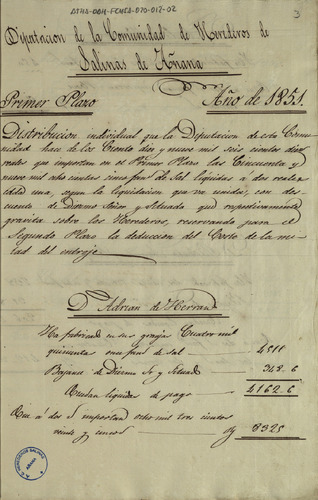 ATHA-DAH-FCHCA-070-017-02
3
Diputacion de la Comunidad de Herederos de
Salinas de Añana
Primer Plazo Año de 1851.
Distribucion individual que la Diputacion de esta Comu
nidad hace de los Ciento diez y nueve mil seis cientos diez
reales que importan en el Primer Plazo las Cincuenta y
nueve mil ocho cientas cinco fans de Sal liquidas a dos reales
cada una, segun la liquidacion que va unida, con des-
cuento de Diezmo Señor y Situado que respectivamente
gravita sobre los Herederos, reservando para el
Segundo Plazo la deduccion del Costo de la mi
tad del entroje
D. Adrian de Herran
Ha fabricado en sus granjas Cuatro mil
quinientas once fans de sal 4511
Bajanse de Diezmo Sr y Situado 348.6
Quedan liquidas de pago 4162.6
Que a dos rs importan ocho mil tres cientos
veinte y cinco 8325